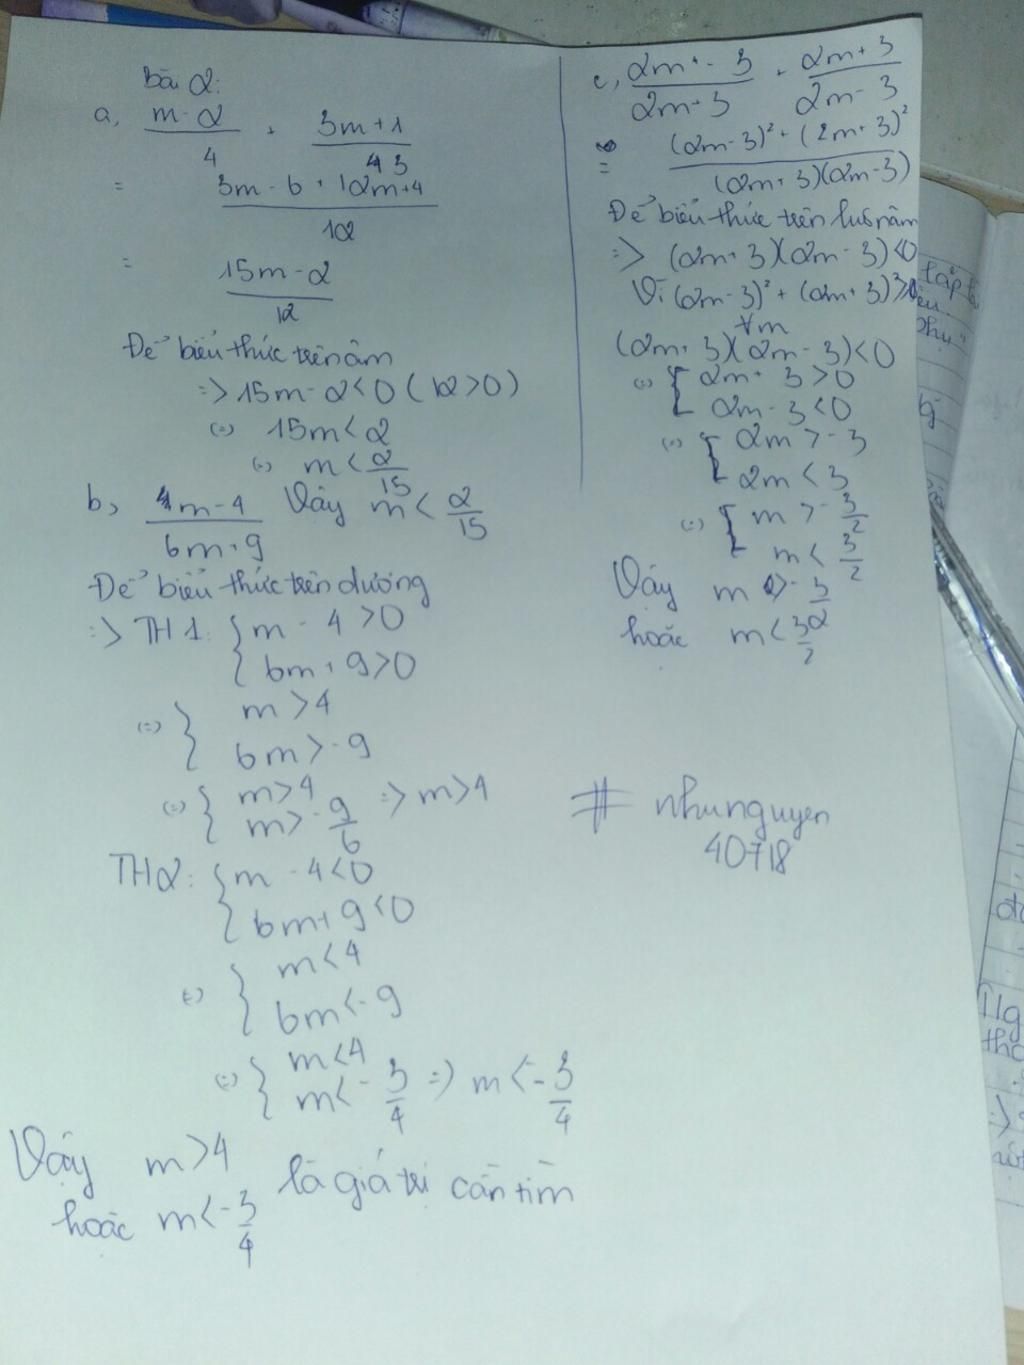 Bài 2:
a, m-2/4 + 3m+1/3
= 3m-6+12m+4/12
= 15m-2/12
Để biểu thức trên âm
=> 15m-2<0 (12>0)
(=) 15m<2
(=) m<2/15
Vậy m<2/15
b, m-4/6m+9
Để biểu thức trên dương
=> TH1: { m-4>0
6m+9>0
(=) { m>4
6m>-9
(=) { m>4
m>-9/6 => m>4
TH2: { m-4<0
6m+9<0
(=) { m<4
6m<-9
(=) { m<4
m<-3/4 => m<-3/4
Vậy m>4
hoặc m<-3/4 là giá trị cần tìm
c, 2m-3/2m+3 + 2m+3/2m-3
= (2m-3)²+(2m+3)²/(2m+3)(2m-3)
Để biểu thức trên luôn âm
=> (2m+3)(2m-3)<0
Vì (2m-3)²+(2m+3)²≥0
∀m
(2m+3)(2m-3)<0
(=) [ 2m+3>0
2m-3<0
(=) [ 2m>-3
2m<3
(=) [ m>-3/2
m<3/2
Vậy m>-3/2
hoặc m<3/2
# nhunguyen
40718